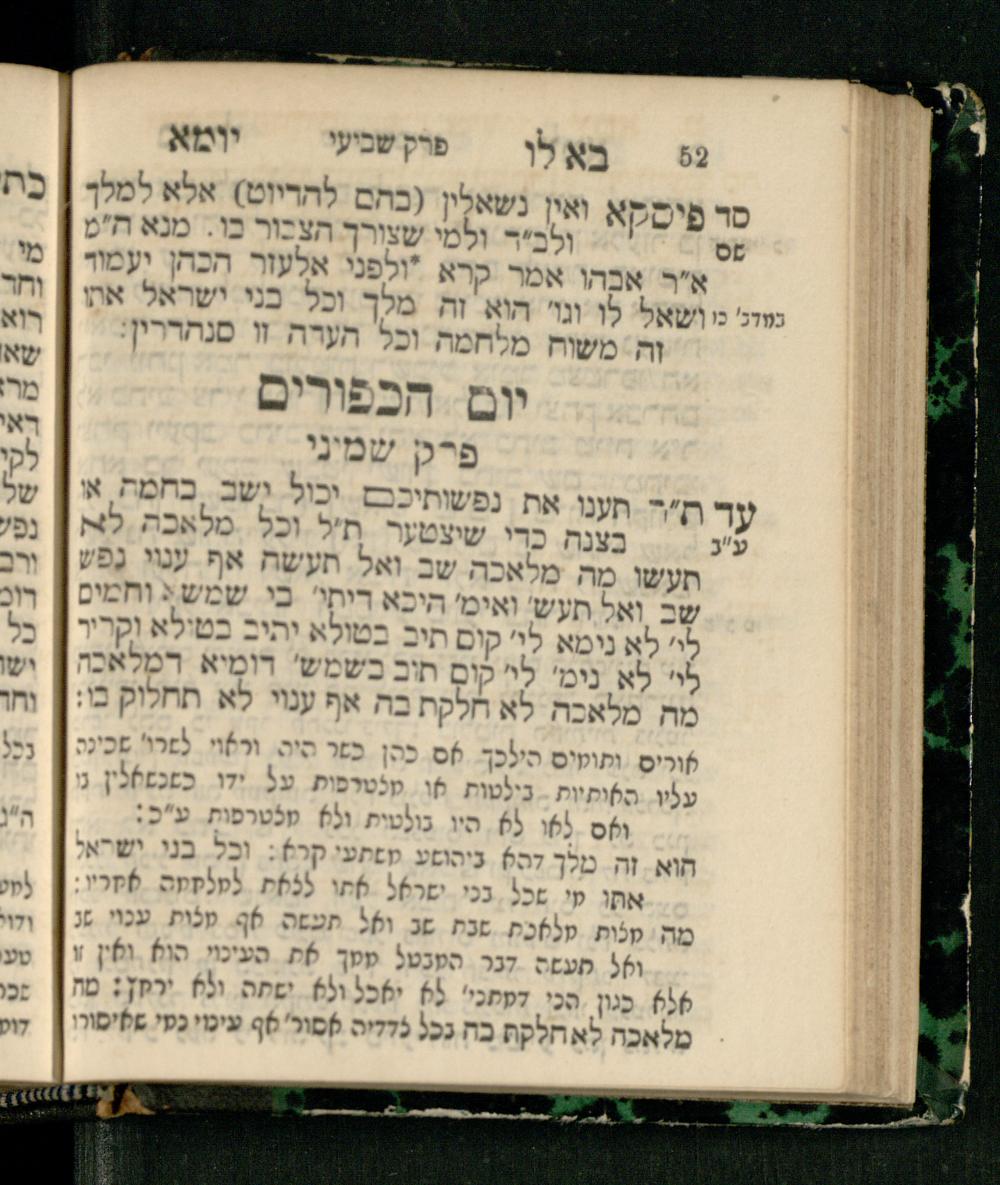 52 בא לו פרק שביעי יומא
סד פיסקא ואין נשאלין (בהם להדיוט) אלא למלך
שם ולב״ד ולמי שצורך הצבור בו. מנא ה״מ
א״ר אבהו אמר קרא *ולפני אלעזר הכהן יעמוד
במדב׳ כז ושאל לו וגו׳ הוא זה מלך וכל בני ישראל אתו
זה משוח מלחמה וכל העדה זו סנהדרין:
יום הכפורים
פרק שמיני
עד ת״ר תענו את נפשותיכם יכול ישב בחמה או
ע״ב בצנה כדי שיצטער ת״ל וכל מלאכה לא
תעשו מה מלאכה שב ואל תעשה אף ענוי נפש
שב ואל תעש׳ ואימ׳ היכא דיתי׳ בי שמשא וחמים
לי׳ לא נימא לי׳ קום תיב בטולא יהיב בטולא וקריר
לי׳ לא נימ׳ לי׳ קום תוב בשמש׳ דומיא דמלאכה
מה מלאכה לא חלקת בה אף ענוי לא תחלוק בו:
אורים ותומים הילכך אם כהן כשר היה וראוי לשרו׳ שכינה
עליו האותיות בולטות או מצטרפות על ידו כשנשאלין בו
ואם לאו לא היו בולטות ולא מצטרפות ע״כ:
הוא זה מלך דהא ביהושע משתעי קרא: וכל בני ישראל
אתו מי שכל בני ישראל אתו לצאת למלחמה אחריו:
מה מצות מלאכת שבת שב ואל תעשה אף מצות ענוי שב
ואל תעשה דבר המבטל ממך את העינוי הוא ואין זו
אלא כגון הכי דמתני׳ לא יאכל ולא ישתה ולא ירחץ: מה
מלאכה לא חלקת בה בכל צדדיה אסור׳ אף עינוי כמי שאיסורו